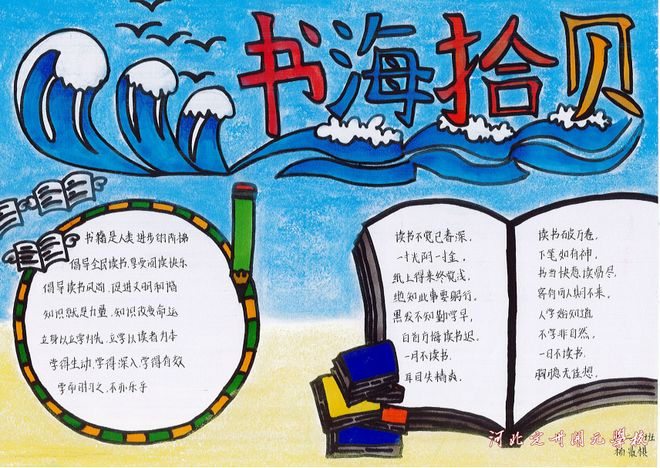 书海拾贝
书籍是人类进步的阶梯
倡导全民读书,享受阅读快乐
倡导读书风尚,促进文明和谐
知识就是力量,知识改变命运
立身以立学为先,立学以读书为本
学得生动,学得深入,学得有效
学而时习之,不亦乐乎
读书不觉已春深,
一寸光阴一寸金。
纸上得来终觉浅,
绝知此事要躬行。
黑发不知勤学早,
白首方悔读书迟。
一月不读书,
耳目失精爽。
读书破万卷,
下笔如有神。
书当快意读易尽,
客有可人期不来。
人学始知道,
不学非自然。
一日不读书,
胸臆无佳想。
河北定州开元学校
班